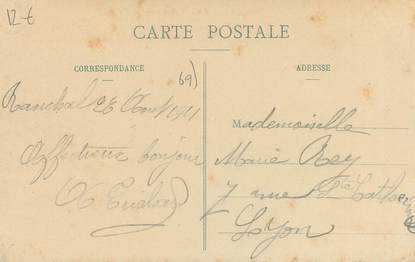 12 €
CARTE POSTALE
CORRESPONDANCE
ADRESSE
69)
Ranchal 26 Août 1911
Affectueux bonjour
Mademoiselle
Marie Rey
7 rue Ste Cather
Lyon